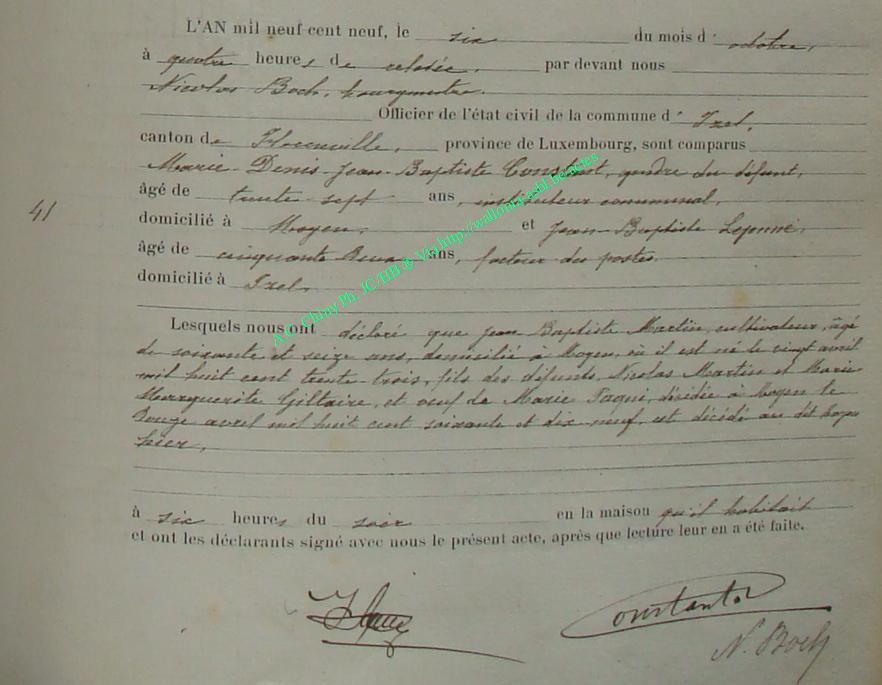 L'AN mil neuf cent neuf, le six du mois d' octobre,
à quatre heures de relevée, par devant nous
Nicolas Boch, bourgmestre.
Officier de l'état civil de la commune d' Izel,
canton de Florenville, province de Luxembourg, sont comparus
Marie-Denis-Jean-Baptiste Constant, gendre du défunt,
âgé de trente sept ans, instituteur communal,
41
domicilié à Moyen, et Jean-Baptiste
âgé de cinquante deux ans, facteur des postes
domicilié à Izel,
Lesquels nous ont déclaré que Jean Baptiste Martin, cultivateur, âgé
de soixante et seize ans, domicilié à Moyen, où il est né le vingt avril
mil huit cent trente-trois, fils des défunts, Nicolas Martin et Marie
Marguerite Giltaire, et veuf de Marie Paqui, décédée à Moyen le
douze avril mil huit cent soixante et dix-neuf, est décédé au dit Moyen
hier,
à six heures du soir en la maison qu'il habitait
et ont les déclarants signé avec nous le présent acte, après que lecture leur en a été faite.
Constant
N. Boch
A.G. Chiny Ph. JC-HB @ Via http://wallonia-asbl.be/actes